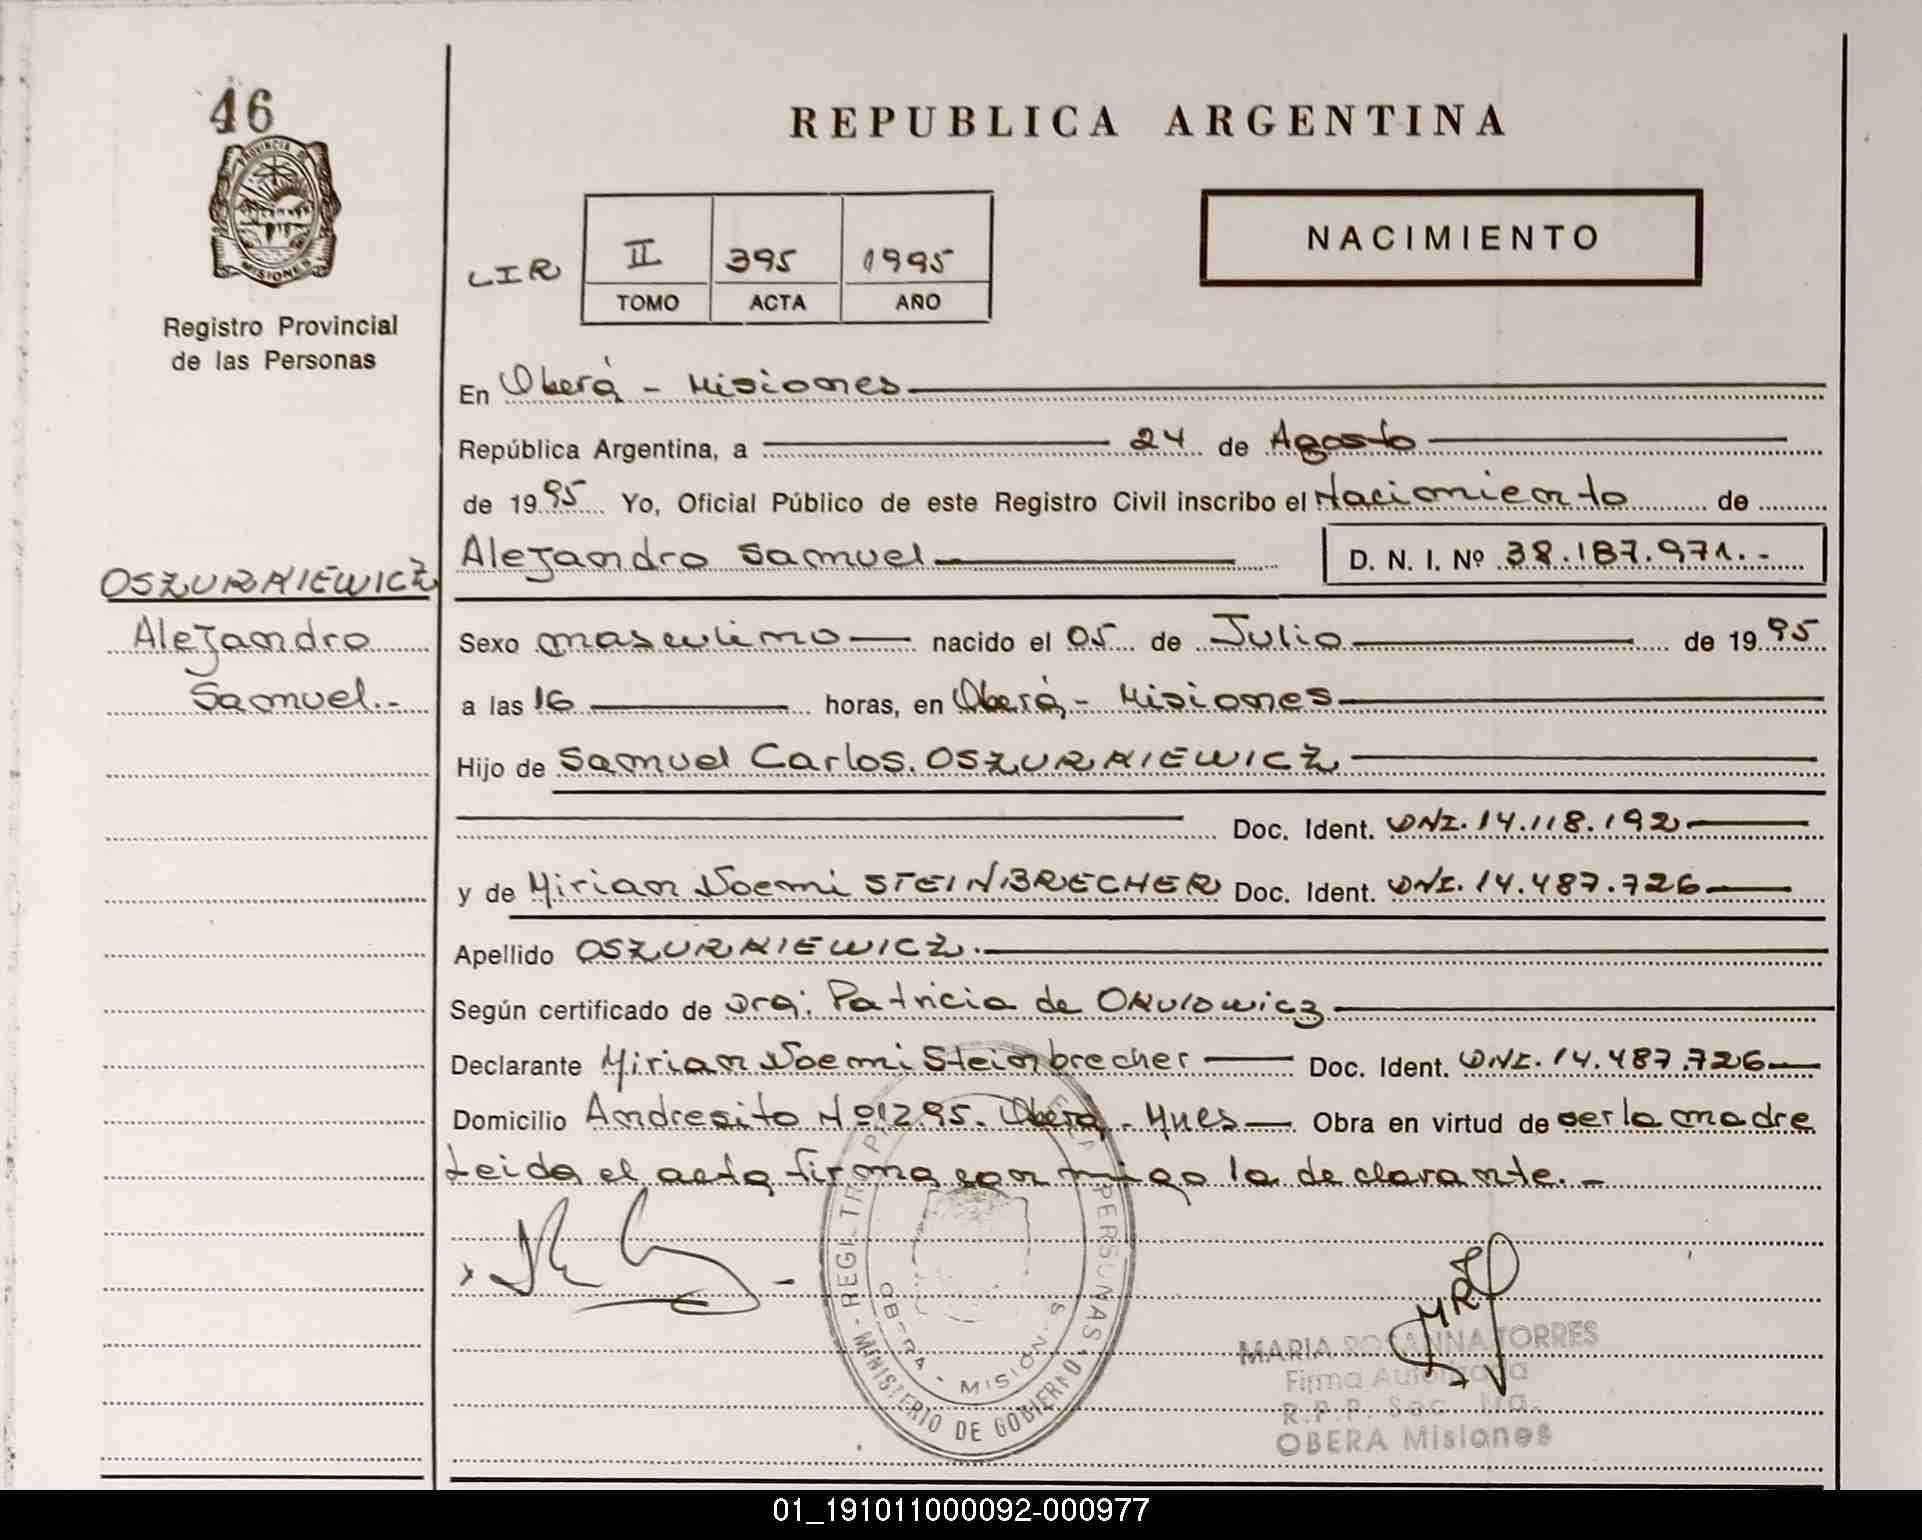 46
PROVINCIA DE
MISIONES
Registro Provincial
de las Personas
REPUBLICA ARGENTINA
LIR
II 395 1995
TOMO ACTA AÑO
NACIMIENTO
En Oberá - Misiones
República Argentina, a 24 de Agosto
de 1995 Yo, Oficial Público de este Registro Civil inscribo el Nacimiento de
Alejandro Samuel D. N. I. Nº 38.187.971.-
OSZURKIEWICZ
Alejandro
Samuel.-
Sexo masculino nacido el 05 de Julio de 1995
a las 16 horas, en Oberá - Misiones
Hijo de Samuel Carlos. OSZURKIEWICZ
Doc. Ident. DNI. 14.118.192
y de Mirian Noemi STEINBRECHER Doc. Ident. DNI. 14.487.726
Apellido OSZURKIEWICZ.
Según certificado de Dra: Patricia de Okulowicz
Declarante Mirian Noemi Steinbrecher Doc. Ident. DNI. 14.487.726
Domicilio Andresito Nº 1295. Oberá - Mnes Obra en virtud de ser la madre
Leida el acta firma con migo la declarante.-
MINISTERIO DE GOBIERNO
PERSONAS
OBERA - MISIONES
MARIA ROSANNA TORRES
Firma Autorizada
R.P.P. Sec. Ira.
OBERA Misiones
01_191011000092-000977